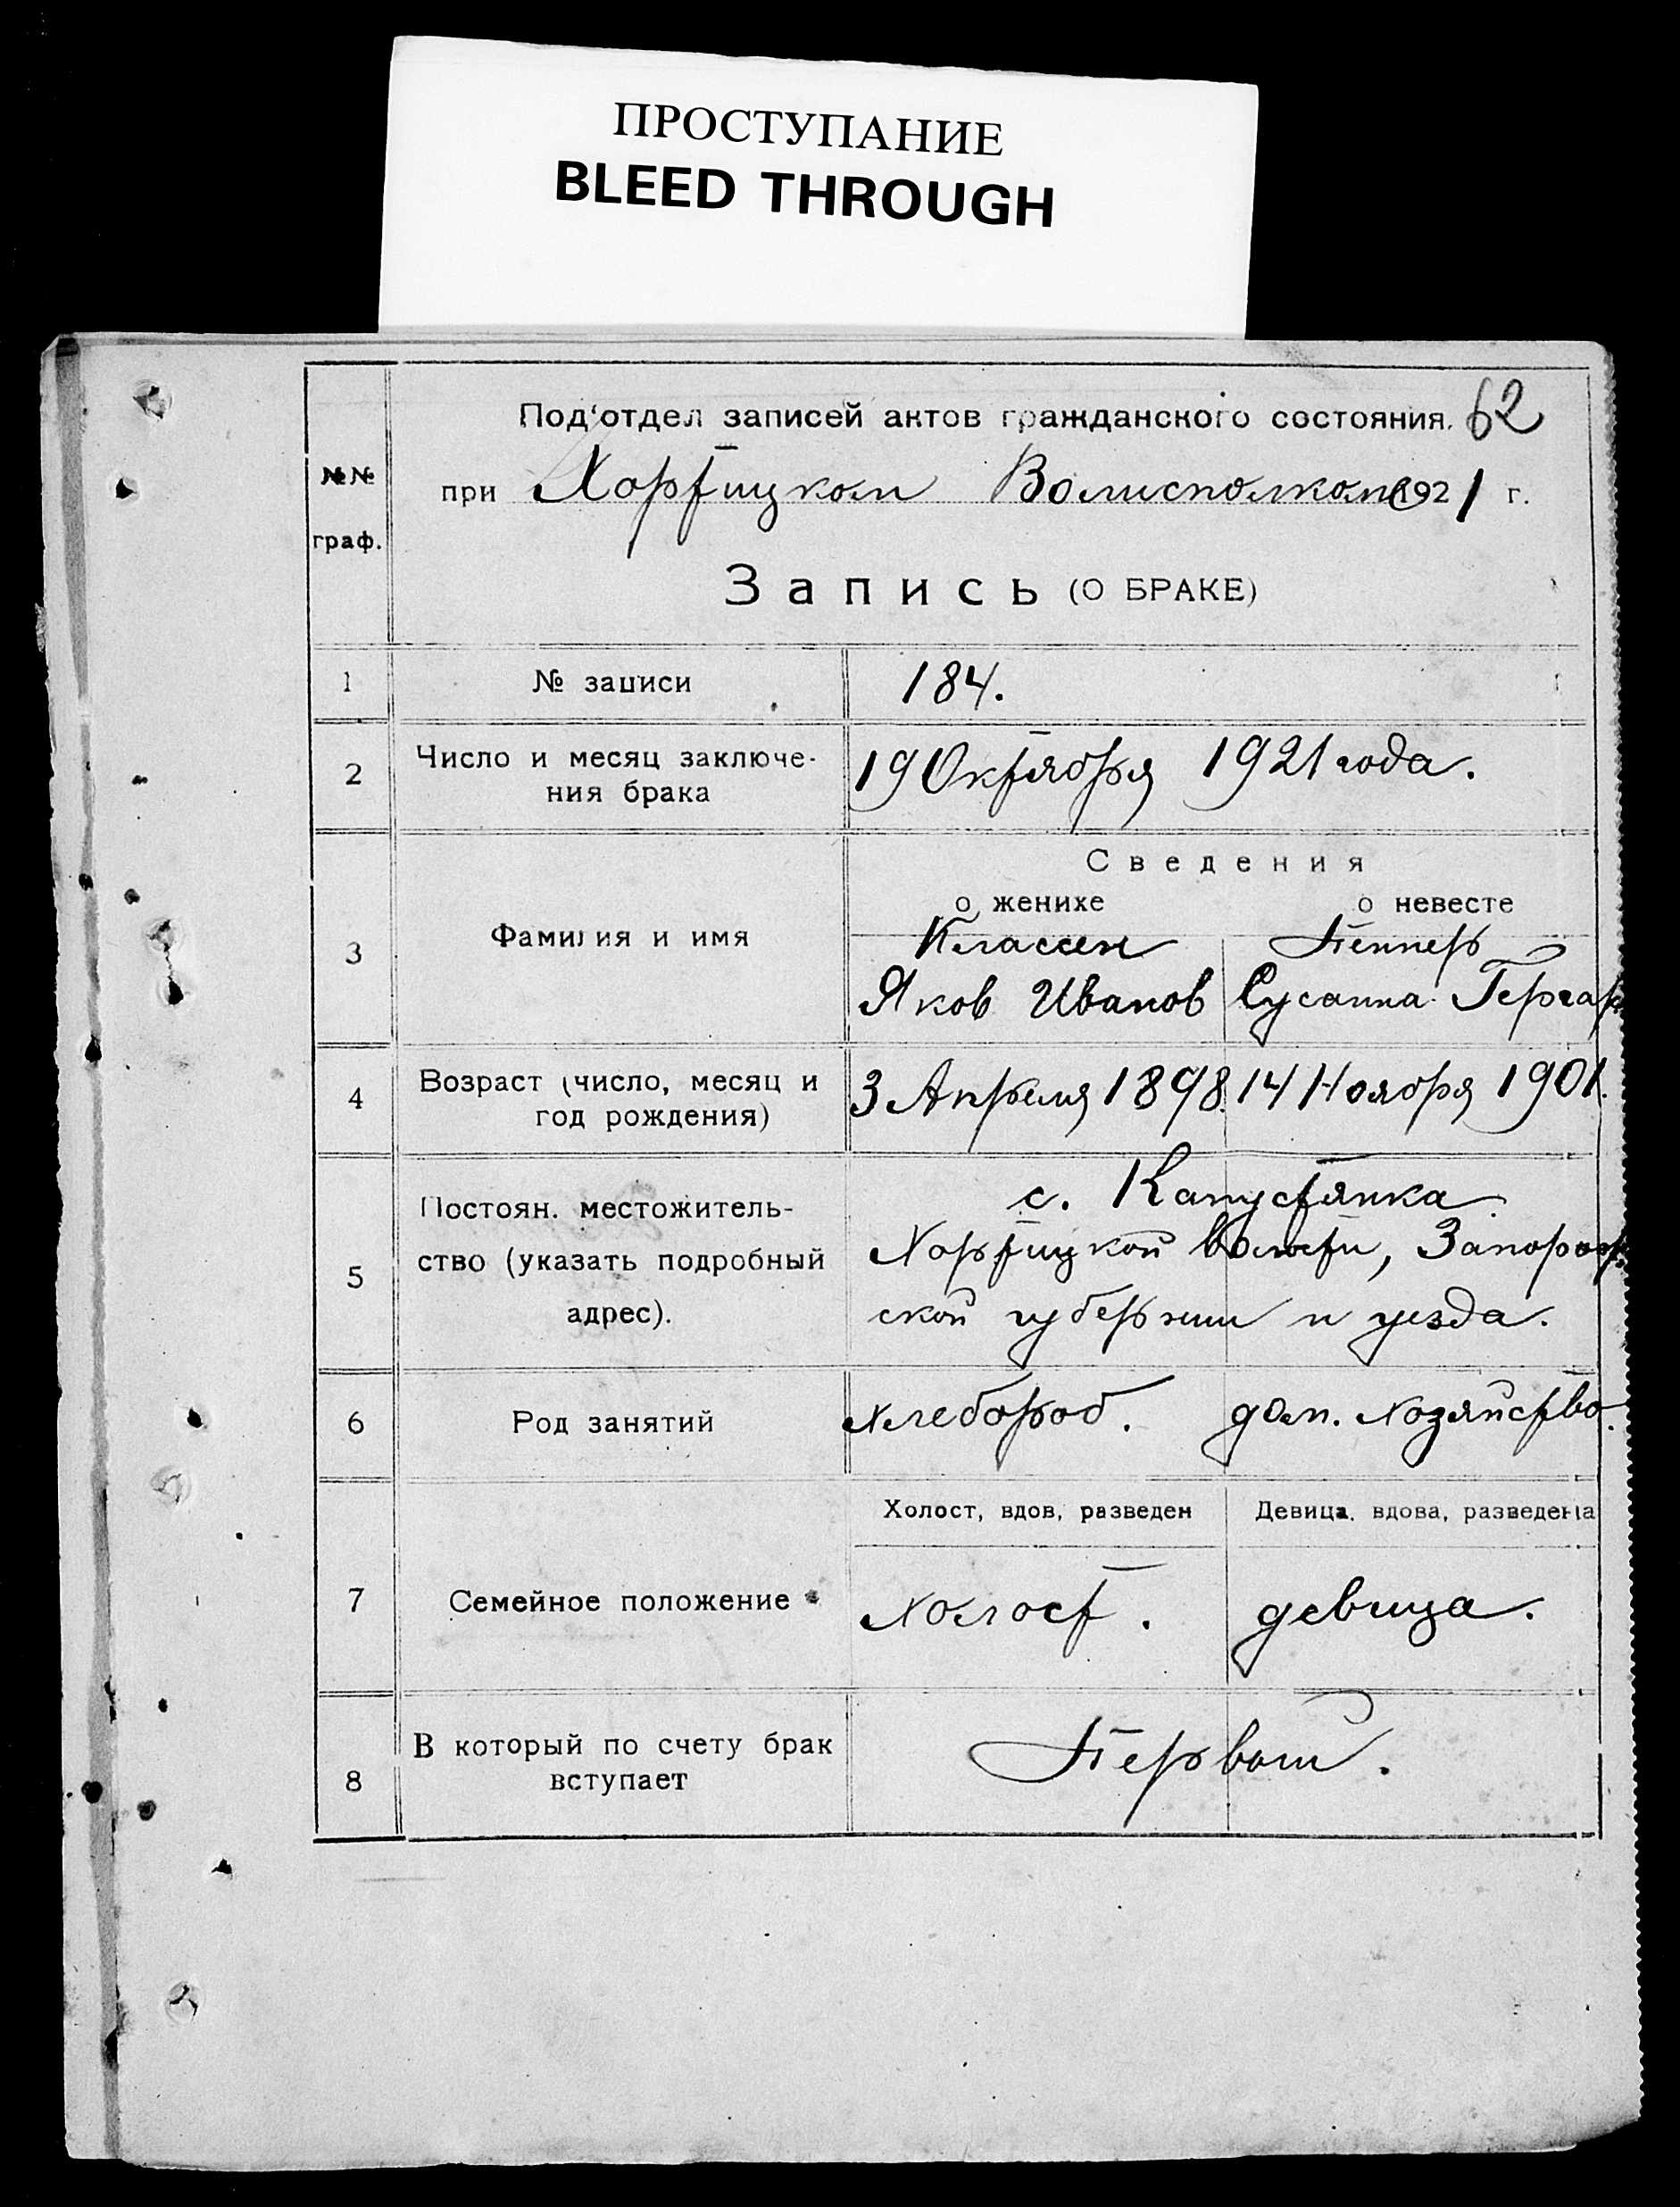 ПРОСТУПАНИЕ
BLEED THROUGH
Под'отдел записей актов гражданского состояния. 62
№№ граф.
при Хортицком Волисполкоме 1921 г.
Запись (О БРАКЕ)
1 № записи 184.
2 Число и месяц заключе-
ния брака 19 Октября 1921 года.
Сведения
о женихе о невесте
3 Фамилия и имя Классен Пеннер
Яков Иванов Сусанна Гергар
4 Возраст (число, месяц и
год рождения) 3 Апреля 1898. 14 Ноября 1901.
5 Постоян. местожитель-
ство (указать подробный
адрес).
с. Капустянка
Хортицкой волости, Запорож
ской губернии и уезда.
6 Род занятий хлебороб. дом. хозяйство.
Холост, вдов, разведен Девица, вдова, разведена
7 Семейное положение холост. девица.
8 В который по счету брак
вступает Первый.